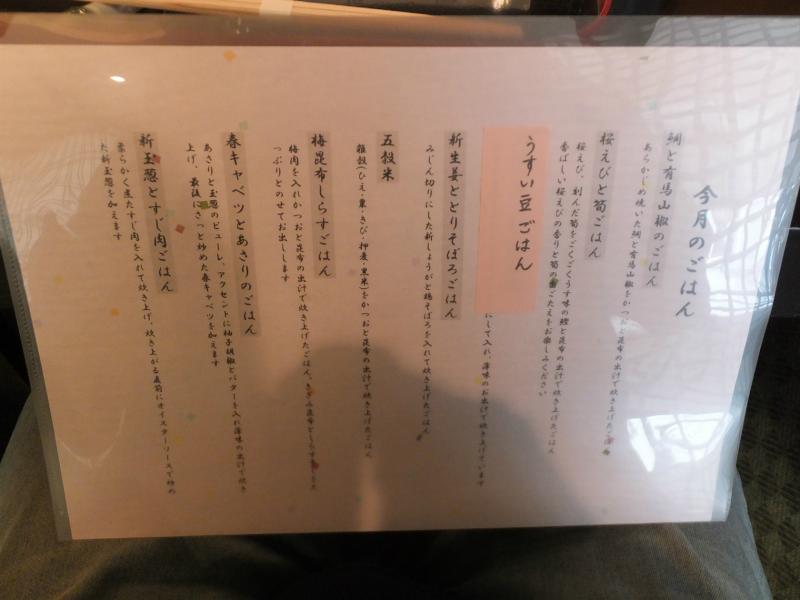 今月のごはん
鯛と有馬山椒のごはん
あらかじめ焼いた鯛と有馬山椒をかつおと昆布の出汁で炊き上げたごはん
桜えびと筍ごはん
桜えび、刻んだ筍をごくごくうす味の鰹と昆布の出汁で炊き上げました
香ばしい桜えびの香りと筍の歯ごたえをお楽しみください
うすい豆ごはん
にして入れ、薄味のお出汁で炊き上げています
新生姜ととりそぼろごはん
みじん切りにした新しょうがと鶏そぼろを入れて炊き上げたごはん
五穀米
雑穀(ひえ・粟・きび・押麦・黒米)をかつおと昆布の出汁で炊き上げたごはん
梅昆布しらすごはん
梅肉を入れかつおと昆布の出汁で炊き上げたごはん、きざみ昆布としらすをた
っぷりとのせてお出しします
春キャベツとあさりのごはん
あさりと玉葱のピューレ、アクセントに柚子胡椒とバターを入れ薄味の出汁で炊き
上げ、最後にさっと炒めた春キャベツを加えます
新玉葱とすじ肉ごはん
柔らかく煮たすじ肉を入れて炊き上げ、炊き上がる直前にオイスターソースで炒め
た新玉葱を加えます